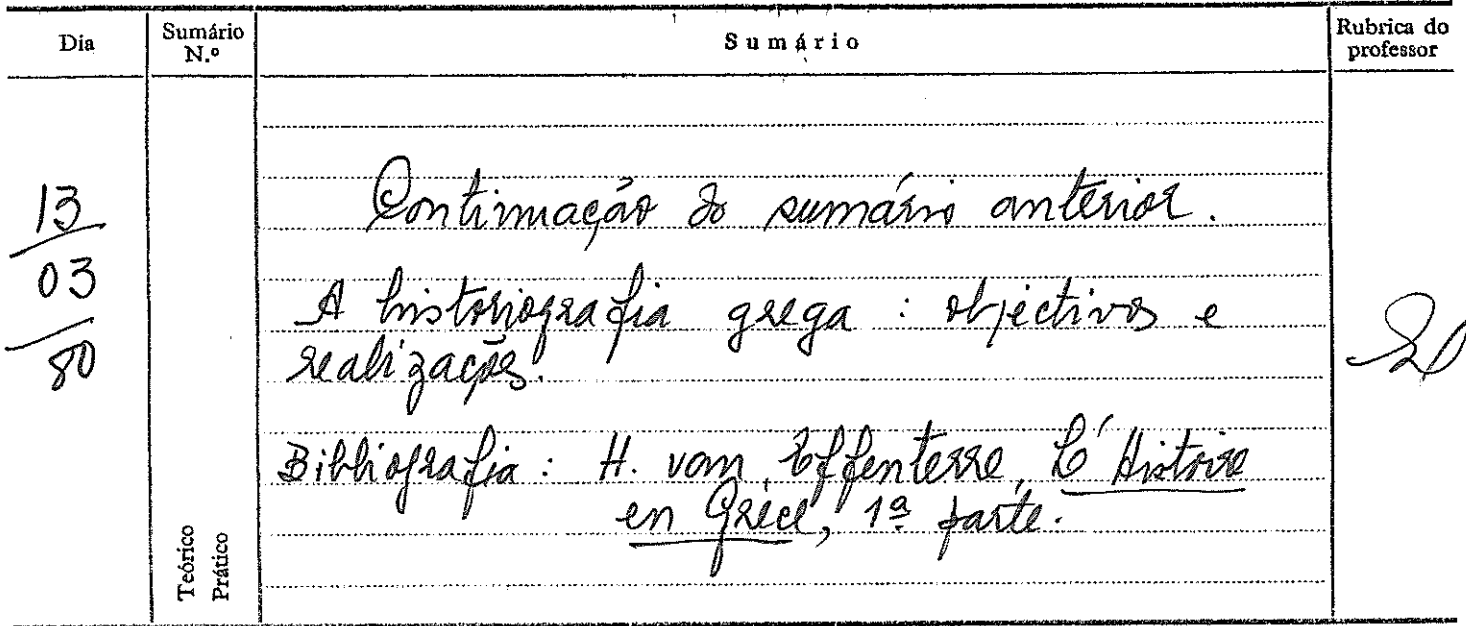 Dia
Sumário N.º
Sumário
Rubrica do professor
13
03
80
Continuação do sumário anterior.
A historiografia grega : objectivos e
realizações.
Bibliografia : H. van Effenterre, L'Histoire
en Grèce, 1ª parte.
Teórico
Prático